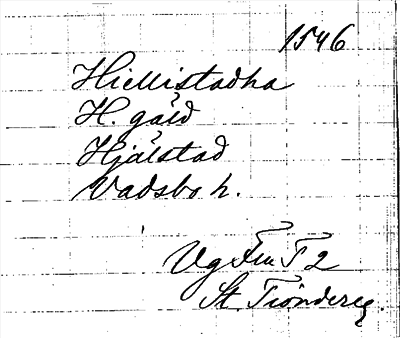 1546
Hiellistadha
H. gård
Hjälstad
Vadsbo h.
Vg Fru T 2
St. Tiöndereg.